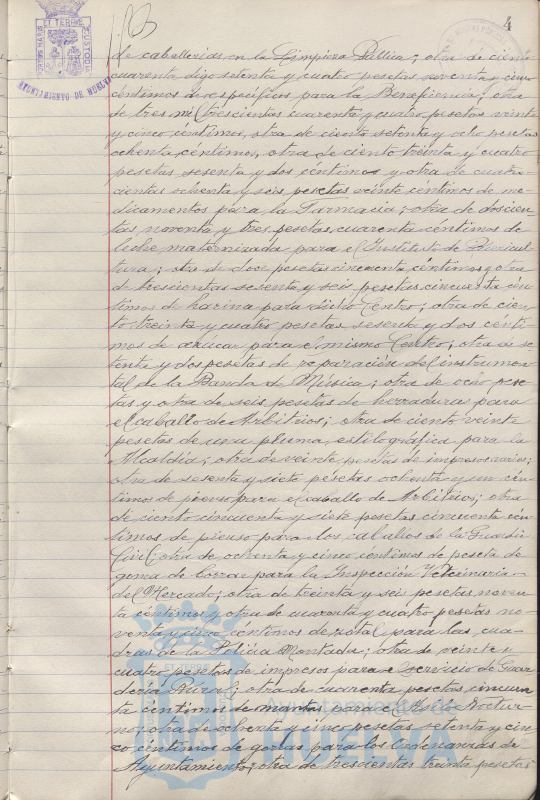 4
de caballerías en la Limpieza Pública; otra de ciento
cuarenta digo setenta y cuatro pesetas noventa y cinco
céntimos de específicos para la Beneficencia; otra
de tres mil trescientas cuarenta y cuatro pesetas veinte
y cinco céntimos, otra de ciento setenta y ocho pesetas
ochenta céntimos, otra de ciento treinta y cuatro
pesetas sesenta y dos céntimos y otra de cuatro
cientas ochenta y seis pesetas veinte céntimos de me
dicamentos para la Farmacia; otra de doscien
tas noventa y tres pesetas cuarenta céntimos de
leche maternizada para el Instituto de Puericul
tura; otra de doce pesetas cincuenta céntimos y otra
de trescientas sesenta y seis pesetas cincuenta cén
timos de harina para dicho Centro; otra de cien
to treinta y cuatro pesetas sesenta y dos cénti
mos de azúcar para el mismo Centro; otra de se
tenta y dos pesetas de reparación del instrumen
tal de la Banda de Música; otra de ocho pese
tas y otra de seis pesetas de herraduras para
el caballo de Arbitrios; otra de ciento veinte
pesetas de una pluma estilográfica para la
Alcaldía; otra de veinte pesetas de impresos varios;
otra de sesenta y siete pesetas ochenta y un cén
timos de pienso para el caballo de Arbitrios; otra
de ciento cincuenta y siete pesetas cincuenta cén
timos de pienso para los caballos de la Guardia
Civil; otra de ochenta y cinco céntimos de peseta de
goma de borrar para la Inspección Veterinaria
del Mercado; otra de treinta y seis pesetas noven
ta céntimos y otra de cuarenta y cuatro pesetas no
venta y cinco céntimos de zotal para las cua
dras de la Policía Montada; otra de veinte y
cuatro pesetas de impresos para el servicio de Guar
dería Rural; otra de cuarenta pesetas cincuen
ta céntimos de mantas para el Asilo Noctur
no; otra de ochenta y cinco pesetas setenta y cin
co céntimos de gorras para los Ordenanzas del
Ayuntamiento; otra de trescientas treinta pesetas
ET TERRAE
CUSTODIA
AYUNTAMIENTO DE HUELVA